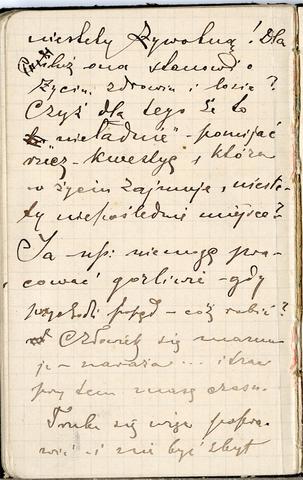 niestety żywotną! Dla
ona stanowi o
życiu, zdrowiu i losie?
Czyż dla tego że to
"nieładnie" - pomijać
rzecz - kwestyę, która
w życiu zajmuje, nieste-
ty niepośledni miejsce?
Ja np. nie mogę pra-
cować gorliwie - gdy
popęd - cóż robić?
Człowiek się
je - naraża ... i trac
przy tem masę czasu.
Trzeba się więc popra-
wić - i nie być zbyt